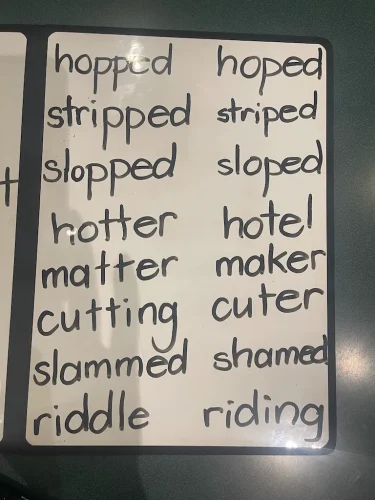 hopped hoped
stripped striped
slopped sloped
hotter hotel
matter maker
cutting cuter
slammed shamed
riddle riding
t